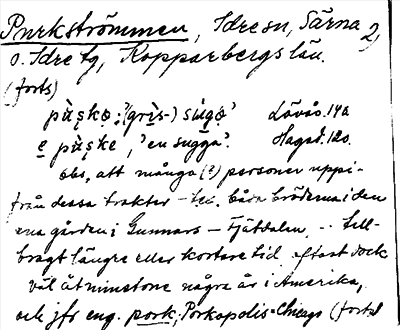 Purkströmmen, Idresn, Särna 2)
o. Idre tg, Kopparbergs län.
(forts)
pùsko; "(gris-) suggo" Lövås. 140
e pùske, 'en sugga'. Hagst. 120.
obs, att många (?) personer uppi-
från dessa trakter – t.ex. båda bröderna i den
ena gården i Gunnars – Fjätdalen, .. till-
bragt längre eller kortare tid, oftast dock
väl åtminstone några år i Amerika,
och jfr eng. pork; Porkopolis = Chicago (forts)